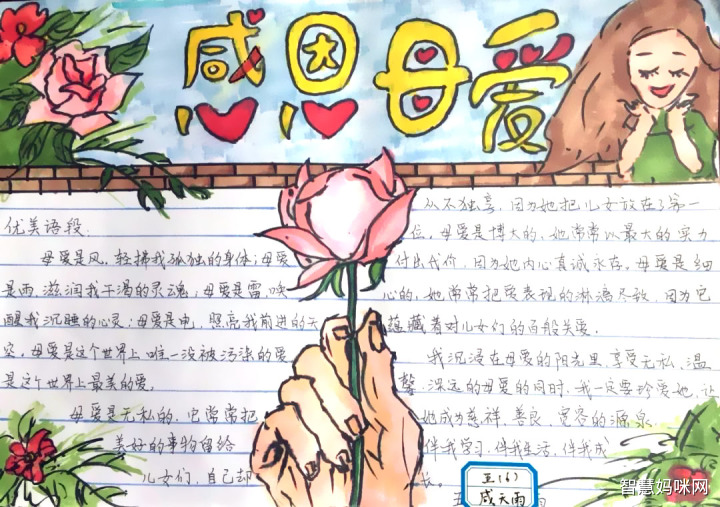 感恩母爱
优美语段:
母爱是风,轻拂我孤独的身体;母爱
是雨,滋润我干渴的灵魂;母爱是雷,唤
醒我沉睡的心灵;母爱是电,照亮我前进的天
空。母爱是这个世界上唯一没被污染的爱
是这个世界上最美的爱。
母爱是无私的,它常常把
美好的事物留给
儿女们,自己却
从不独享,因为她把儿女放在了第一
位。母爱是博大的,她常常以最大的实力
付出代价,因为她内心真诚永存。母爱是细
心的,她常常把爱表现的淋漓尽致,因为它
蕴藏着对儿女们的百般关爱。
我沉浸在母爱的阳光里,享受无私、温
馨、深远的母爱的同时,我一定要珍爱她,让
她成为慈祥、善良、宽容的源泉
伴我学习,伴我生活,伴我成
长。
五(6)
智慧妈咪网